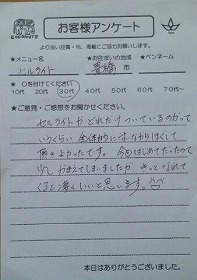 お客様アンケート
より良い品質・性、掲載にご協力お願いします。
★メニュー名 ★お住まいの地域 ★ペンネーム
セルライト 豊橋 市
★○を付けてください
10代 20代 30代 40代 50代 60代 70代~
★ご意見・ご感想をお聞かせください。
セルライトがどれだけついているのかって
いうくらい 全体的に
頂きよかったです。今回はじめてだったので
少し かまえてしまいましたが きっと なれて
くると楽しいと思います。
本日はありがとうございました。